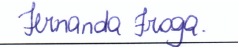 Fernanda Fraga.